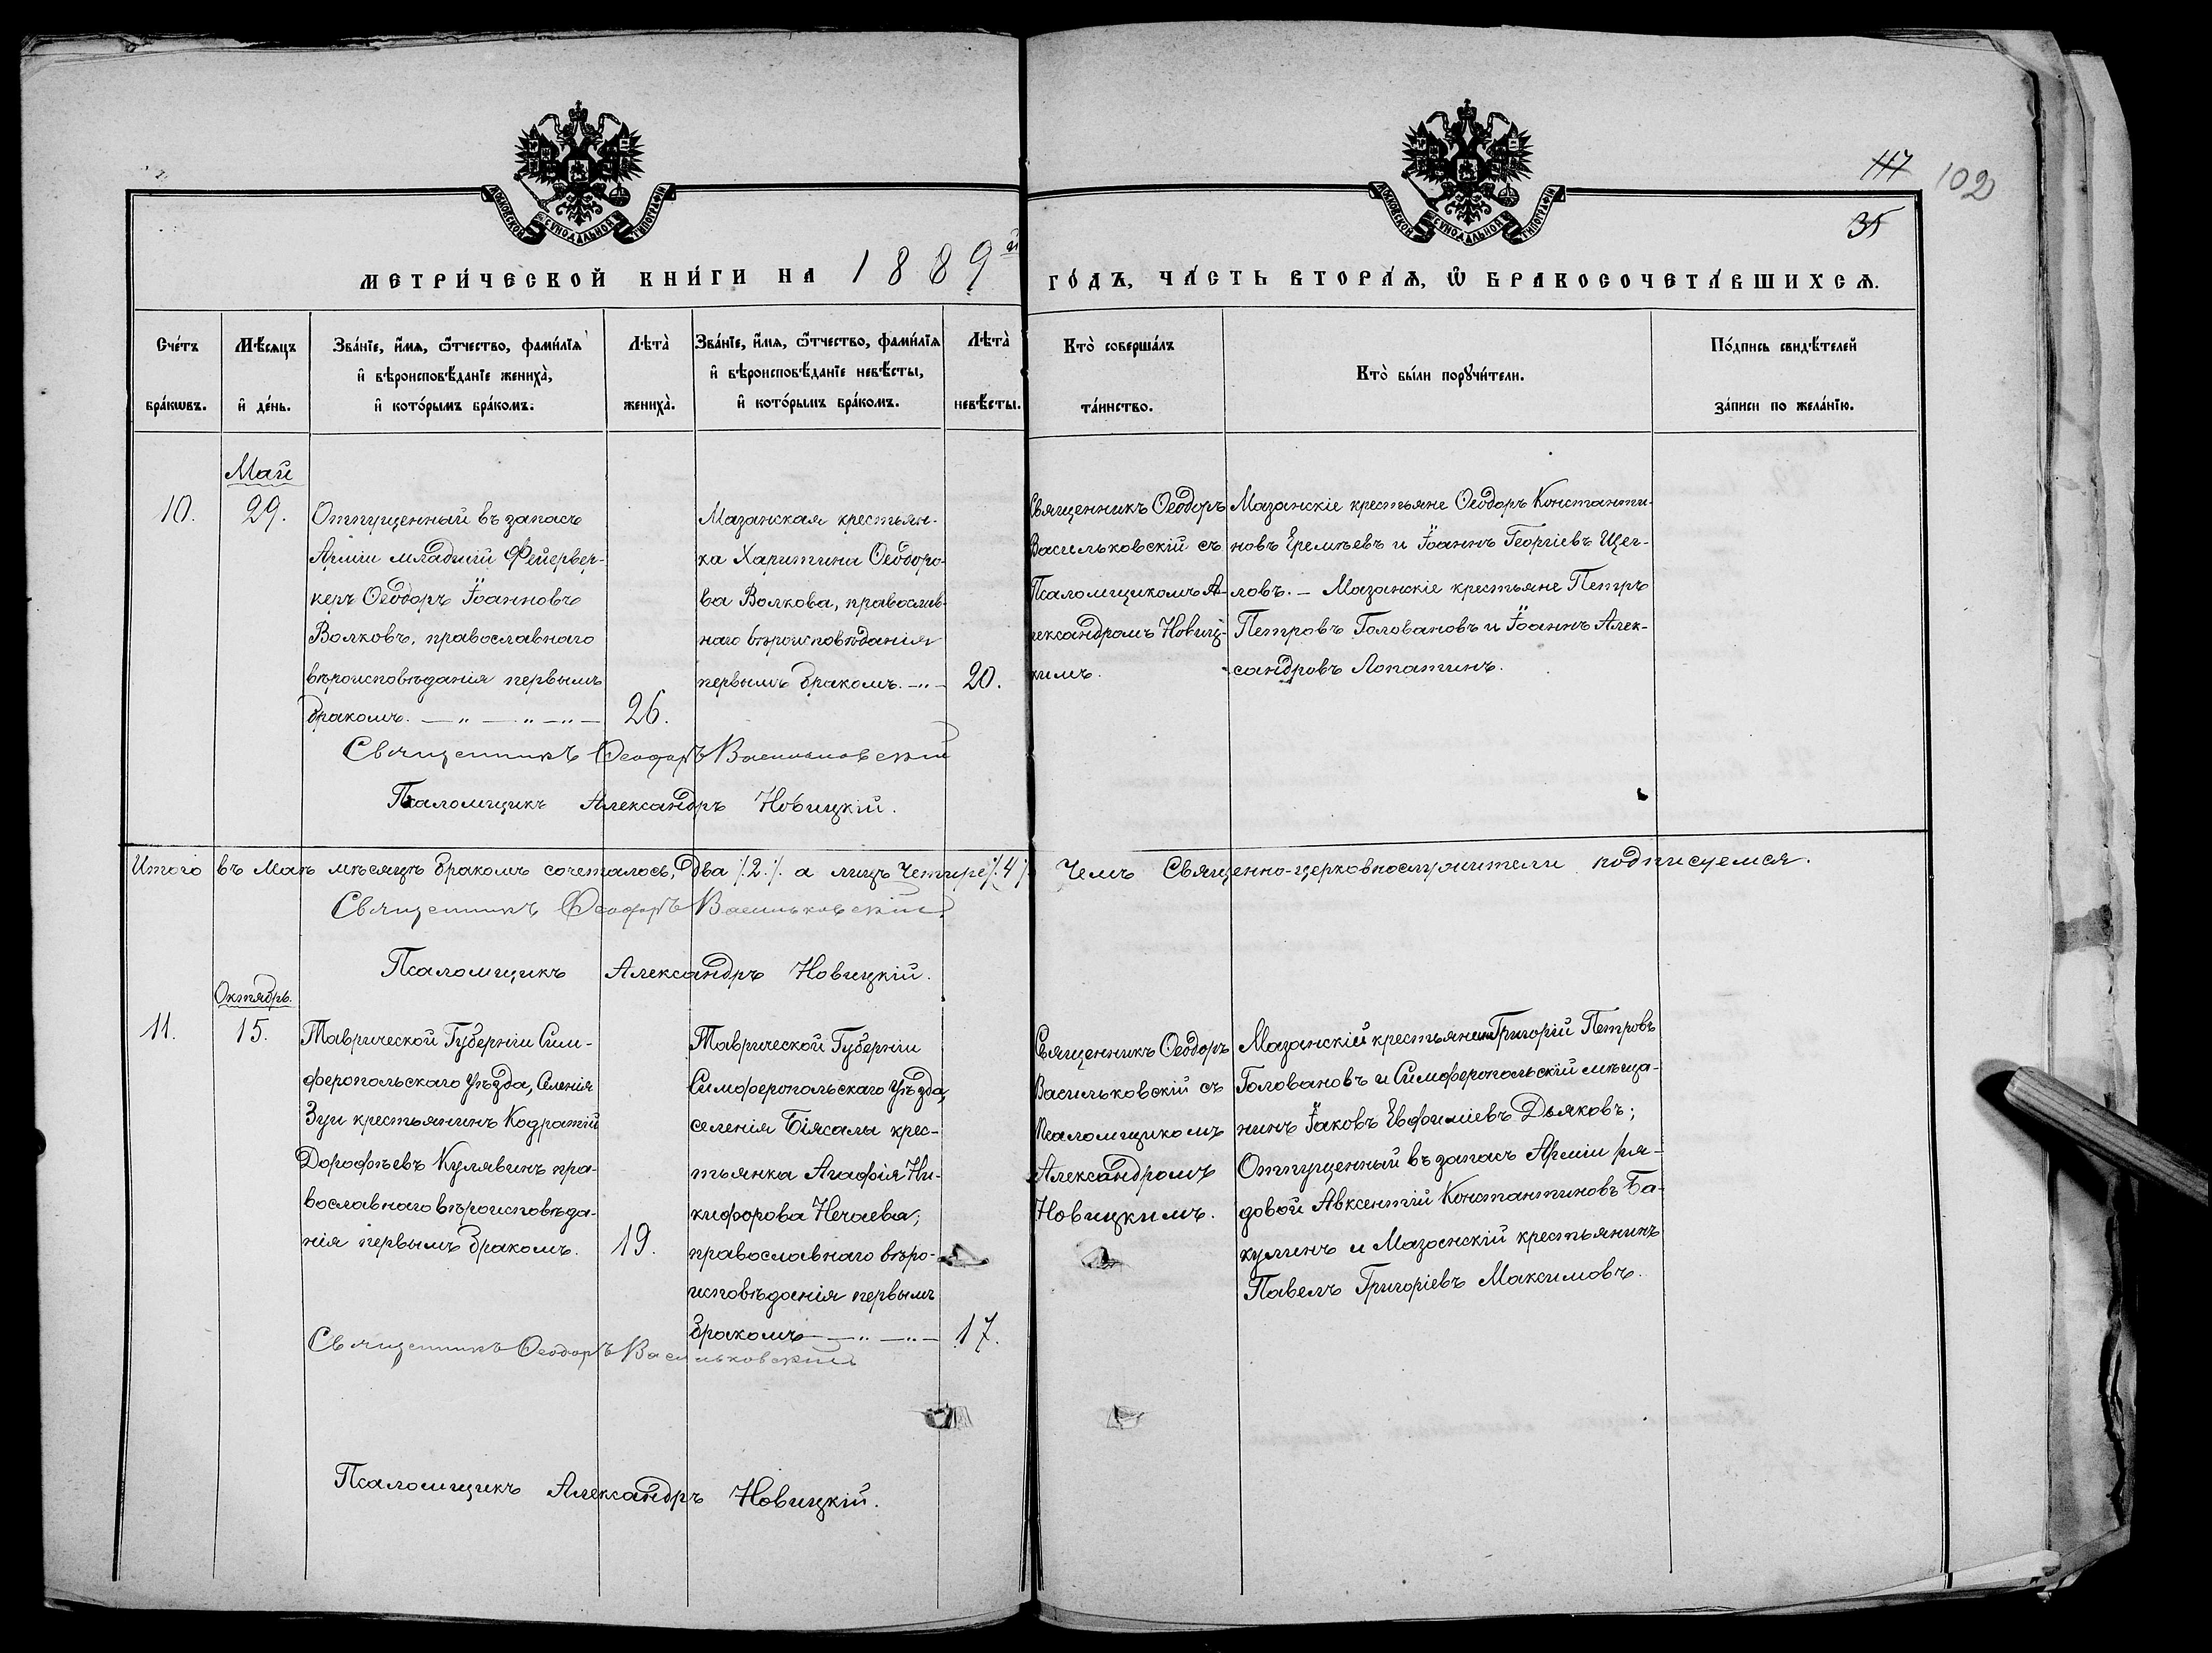 МОСКОВСКОЙ СѴНОДАЛЬНОЙ ТИПОГРАФІИ
МОСКОВСКОЙ СѴНОДАЛЬНОЙ ТИПОГРАФІИ
117 102
35
МЕТРИ́ЧЕСКОЙ КНИ́ГИ НА 1889й ГО́ДЪ, ЧА́СТЬ ВТОРА́Ѧ, Ѡ҆ БРАКОСОЧЕТА́ВШИХСѦ.
Сче́тъ
бра́кѡвъ.
Мѣ́сѧцъ
и҆ де́нь.
Зва́нїе, и҆́мѧ, ѻ҆́тчество, фами́лїѧ
и҆ вѣроисповѣ́данїе жениха̀,
и҆ кото́рымъ бра́комъ.
Лѣта̀
жениха̀.
Зва́нїе, и҆́мѧ, ѻ҆́тчество, фами́лїѧ
и҆ вѣроисповѣ́данїе невѣ́сты,
и҆ кото́рымъ бра́комъ.
Лѣта̀
невѣ́сты.
Кто̀ соверша́лъ
та́инство.
Кто̀ бы́ли порꙋчи́тели.
По́дпись свидѣ́телей
за́писи по жела́нїю.
10.
Май
29.
Отпущенный въ запасъ
Арміи младшій Фейервер-
керъ Ѳеодоръ Іоанновъ
Волковъ, православнаго
вѣроисповѣданія первымъ
бракомъ. — „ — „ — „ —
26.
Мазанская крестьян-
ка Харитина Ѳеодоро-
ва Волкова, православ-
наго вѣроисповѣданія
первымъ бракомъ. — „ —
20.
Священникъ Ѳеодоръ
Васильковскій съ
Псаломщикомъ А-
лександромъ Новиц-
кимъ.
Мазанскіе крестьяне Ѳеодоръ Константи-
новъ Еремѣевъ и Іоаннъ Георгіевъ Щег-
ловъ. — Мазанскіе крестьяне Петръ
Петровъ Головановъ и Іоаннъ Алек-
сандровъ Лопатинъ.
Священникъ Ѳеодоръ Васильковскій
Псаломщикъ Александръ Новицкій.
Итого въ Маѣ мѣсяцѣ бракомъ сочеталось, два /.2./. а лицъ Четыре /.4/. Чемъ Священно-церковнослужители подписуемся.
Священникъ Ѳеодоръ Васильковскій
Псаломщикъ Александръ Новицкій.
11.
Октябрь.
15.
Таврической Губерніи Сим-
феропольскаго Уѣзда, Селенія
Зуи крестьянинъ Кодратій
Дорофѣевъ Кулявинъ пра-
вославнаго вѣроисповѣда-
нія первымъ бракомъ.
19.
Таврической Губерніи
Симферопольскаго Уѣзда,
селенія Біясалы крес-
тьянка Агафія Ни-
кифорова Нечаева;
православнаго вѣро-
исповѣданія первымъ
бракомъ — „ — „ —
17.
Священникъ Ѳеодоръ
Васильковскій съ
Псаломщикомъ
Александромъ
Новицкимъ.
Мазанскій крестьянинъ Григорій Петровъ
Головановъ и Симферопольскій мѣща-
нинъ Іаковъ Евфиміевъ Дьяковъ;
Отпущенный въ запасъ Арміи ря-
довой Авксентій Константиновъ Ба-
кулинъ и Мазанскій крестьянинъ
Павелъ Григоріевъ Максимовъ.
Священникъ Ѳеодоръ Васильковскій
Псаломщикъ Александръ Новицкій.